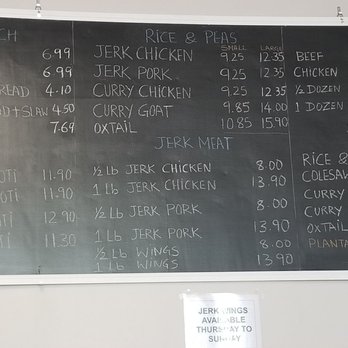 CH
6.99
6.99
READ 4.10
D+SLAW 4.50
7.69
OTI 11.90
OTI 11.90
OTI 12.90
OTI 11.30
RICE & PEAS
SMALL LARGE
JERK CHICKEN 9.25 12.35
JERK PORK 9.25 12.35
CURRY CHICKEN 9.25 12.35
CURRY GOAT 9.85 14.00
OXTAIL 10.85 15.90
JERK MEAT
½ lb JERK CHICKEN 8.00
1 lb JERK CHICKEN 13.90
½ lb JERK PORK 8.00
1 lb JERK PORK 13.90
½ lb WINGS 8.00
1 lb WINGS 13.90
BEEF
CHICKEN
½ DOZEN
1 DOZEN
RICE &
COLESAW
CURRY
CURRY
OXTAIL
PLANTA
JERK WINGS
AVAILABLE
THURSDAY TO
SUNDAY